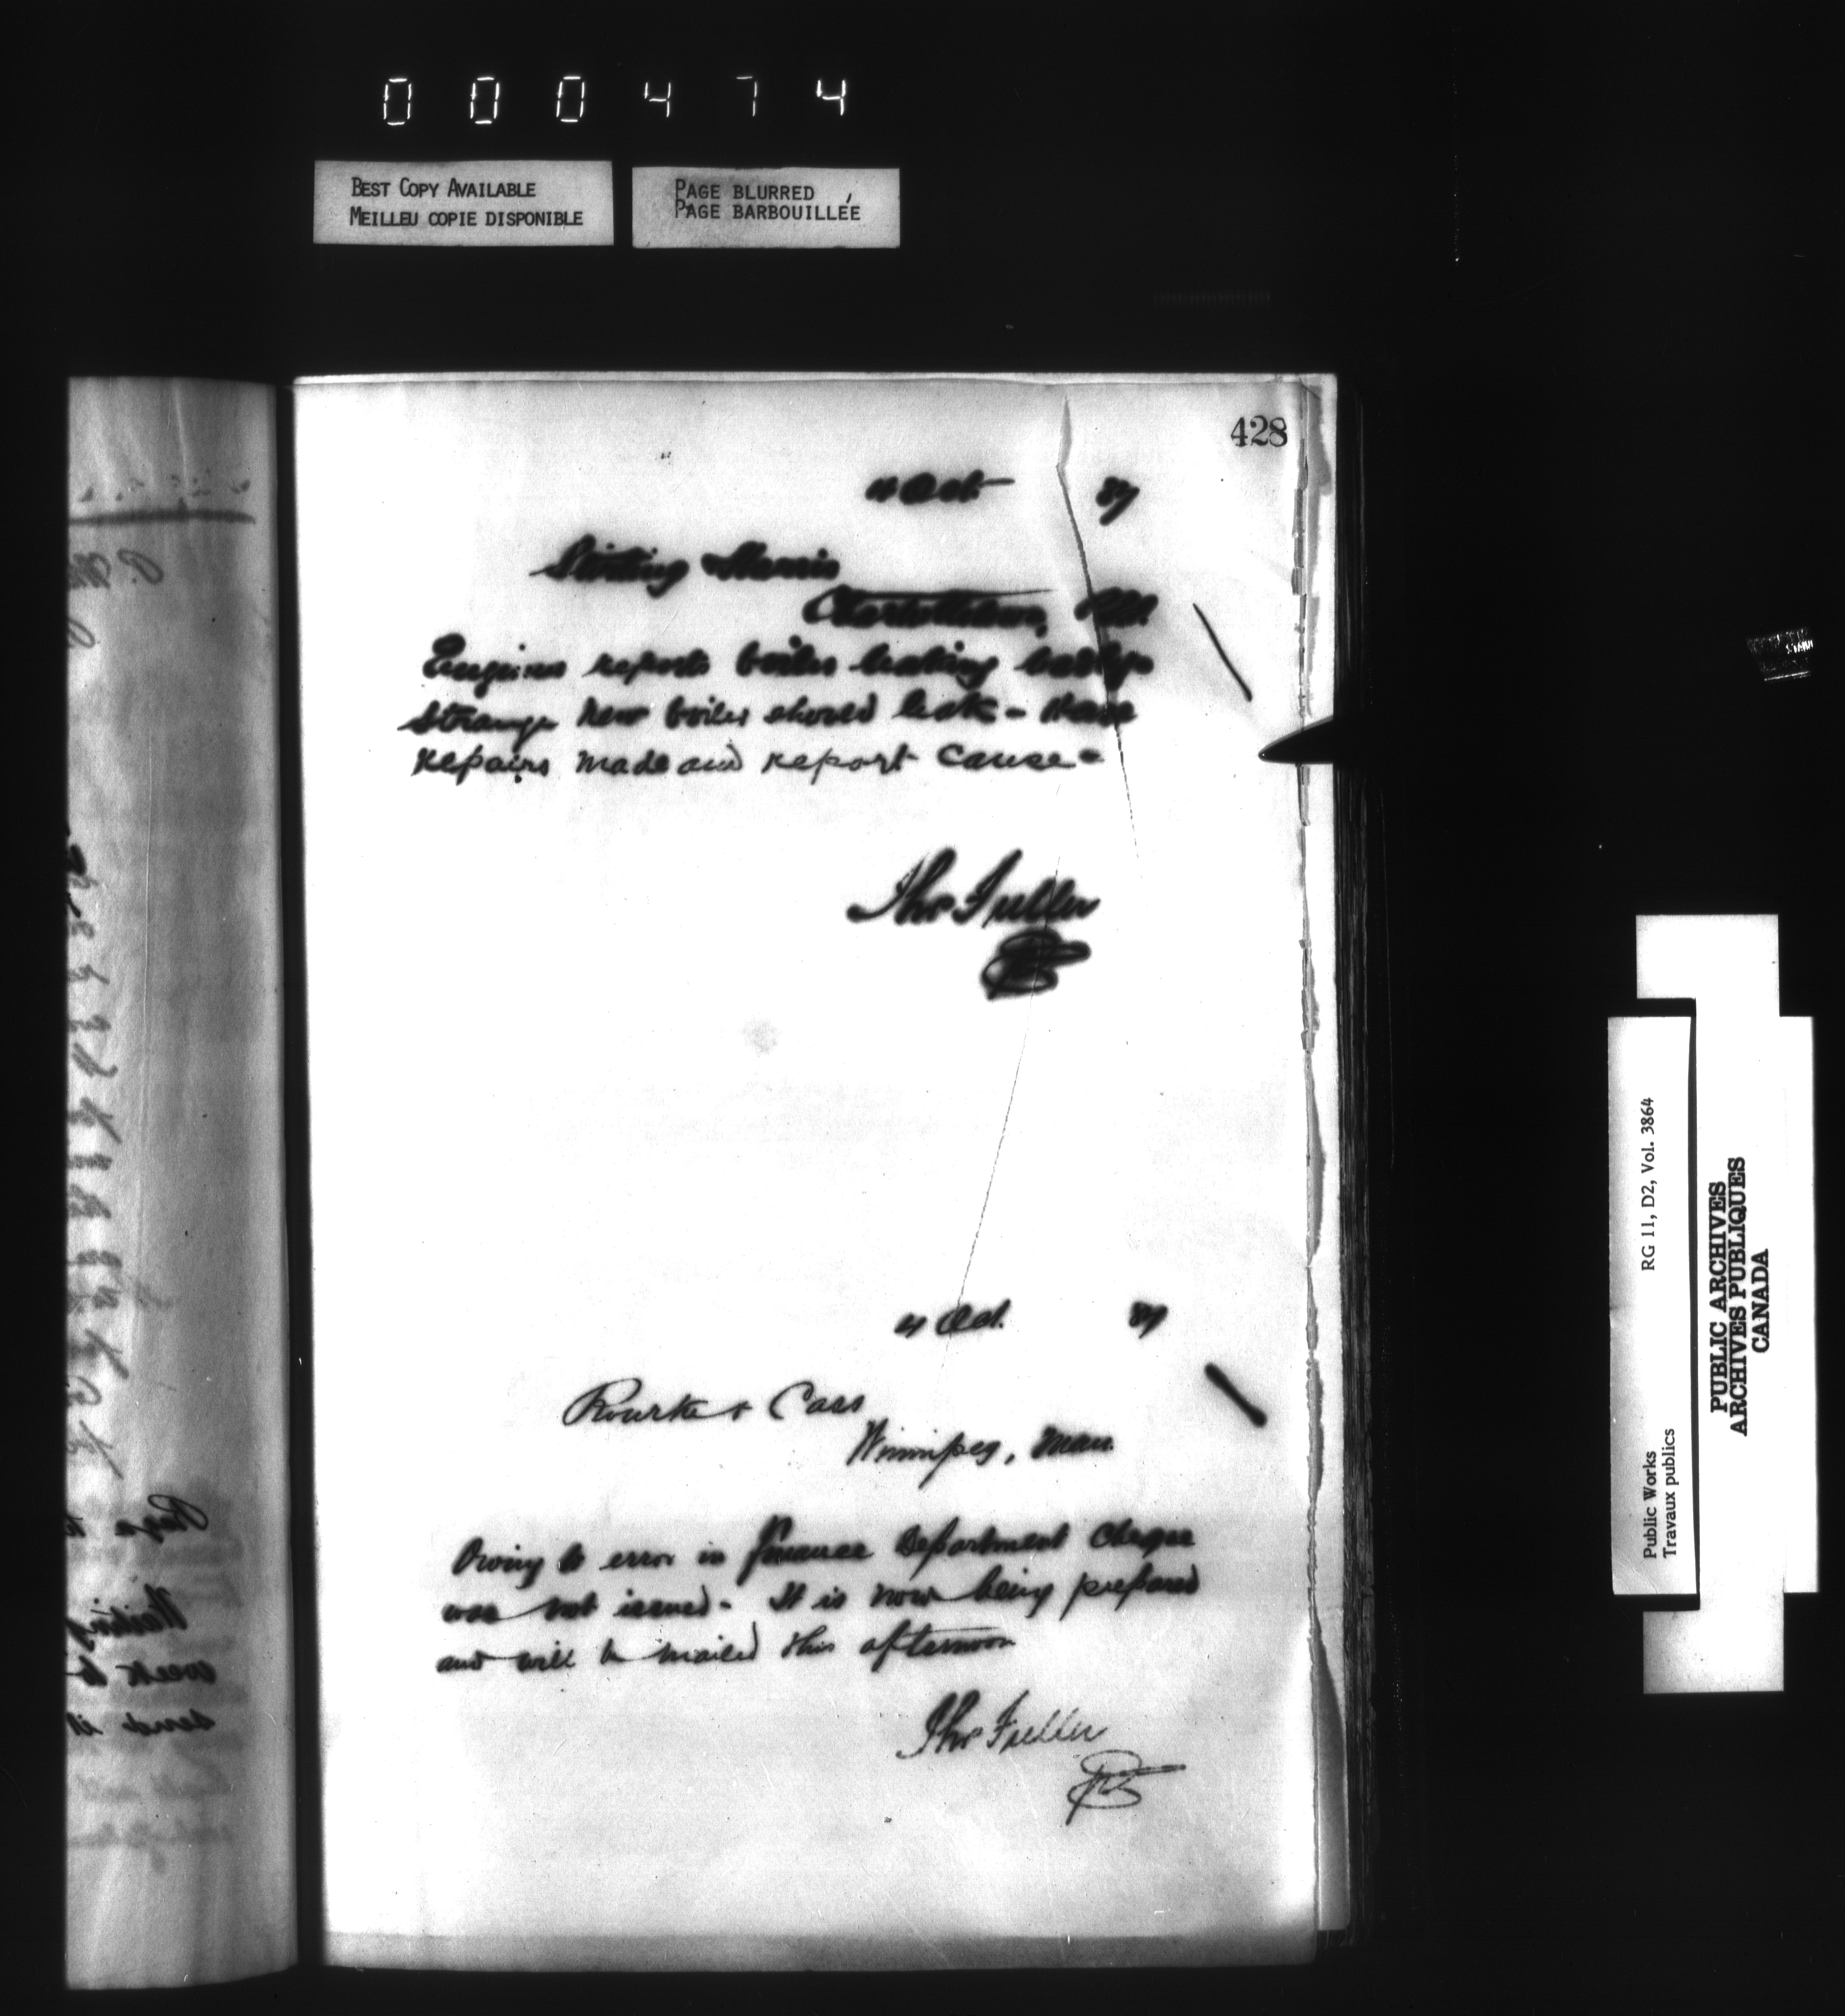 000474
BEST COPY AVAILABLE
MEILLEU COPIE DISPONIBLE
PAGE BLURRED
PAGE BARBOUILLÉE
428
4 Oct. 87
Stirling Harris
Charlottetown, PEI.
Engineer reports boiler leaking badly
strange new boiler should leak - Have
repairs made and report cause -
Thos Fuller
4 Oct. 87
Rourke & Cass
Winnipeg, Man.
Owing to error in finance Department cheque
was not issued - It is now being prepared
and will be mailed this afternoon
Thos Fuller
RG 11, D2, Vol. 3864
Public Works
Travaux publics
PUBLIC ARCHIVES
ARCHIVES PUBLIQUES
CANADA